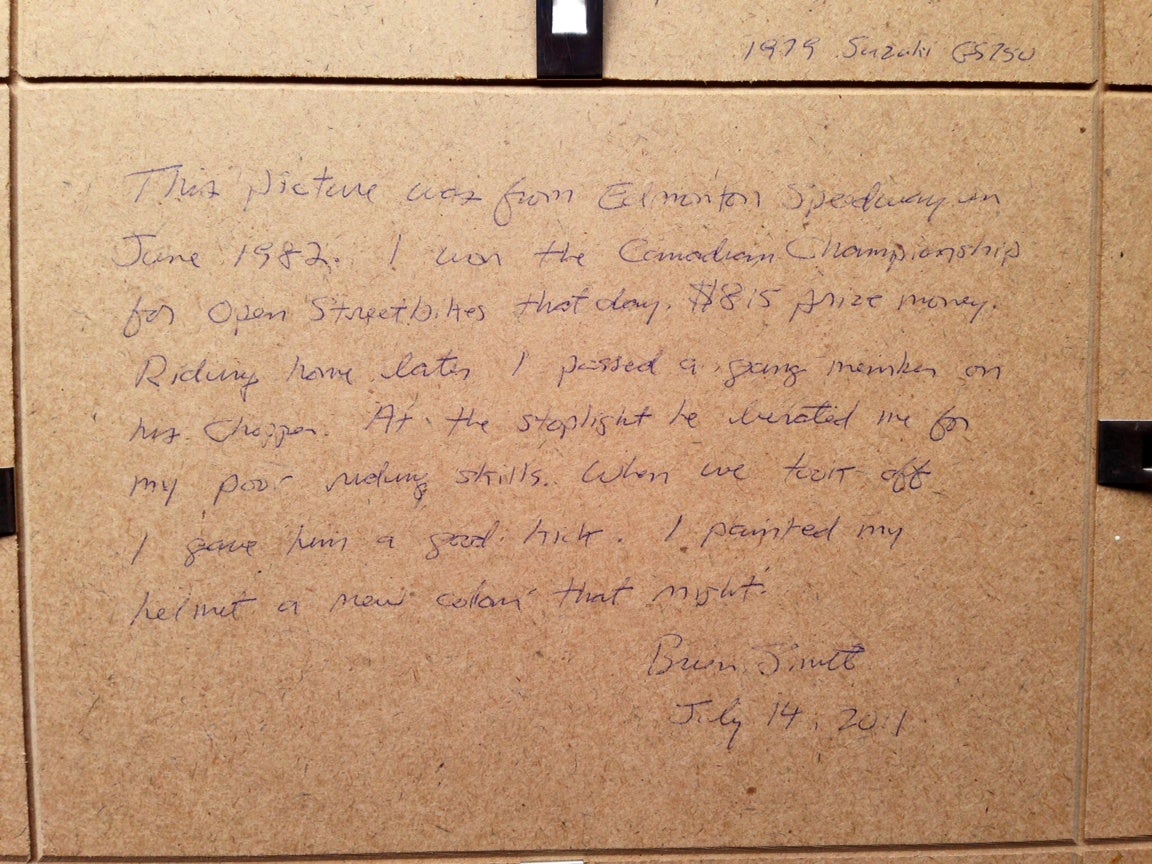 1979 Suzuki GS750
This picture was from Edmonton Speedway in
June 1982. I won the Canadian Championship
for Open Streetbikes that day. $815 prize money.
Riding home later I passed a gang member on
his Chopper. At the stoplight he berated me for
my poor riding skills. When we took off
I gave him a good kick. I painted my
helmet a new colour that night.
Brian
July 14, 2011